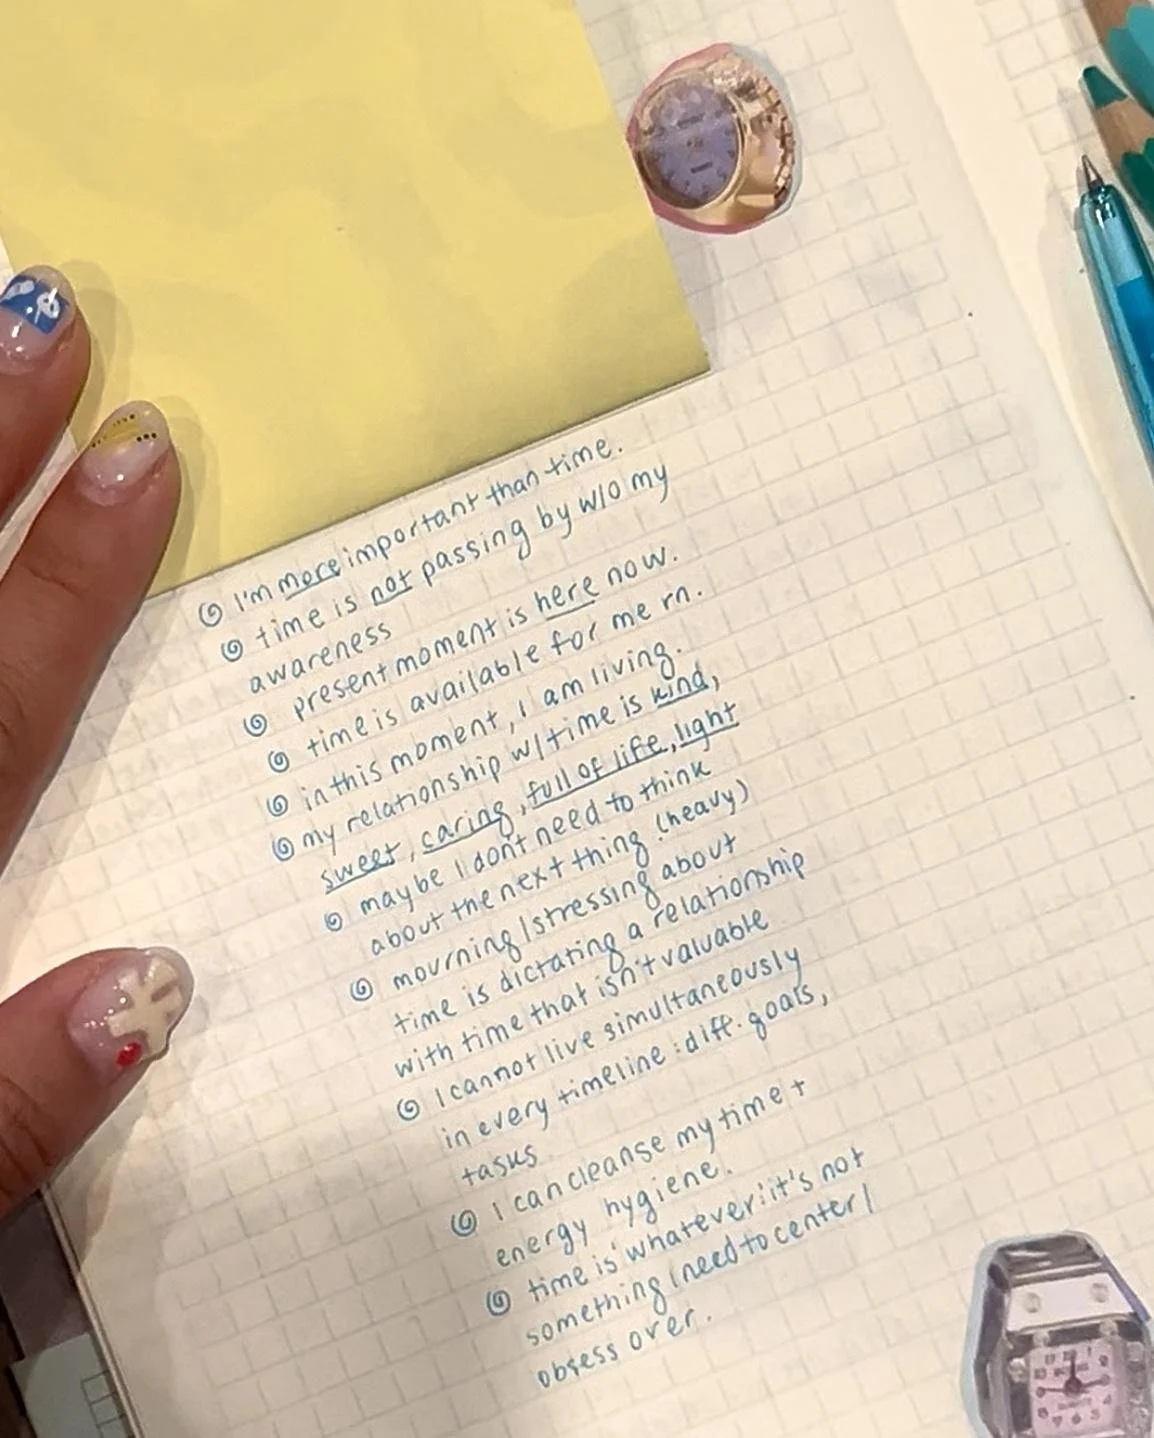 I'm more important than time.
time is not passing by w/o my
awareness
present moment is here now.
time is available for me rn.
in this moment, I am living.
my relationship w/ time is kind,
sweet, caring, full of life, light
maybe I don't need to think
about the next thing (heavy)
mourning/stressing about
time is dictating a relationship
with time that isn't valuable
I cannot live simultaneously
in every timeline: diff. goals,
tasks
I can cleanse my time +
energy hygiene.
time is whatever: it's not
something I need to center/
obsess over.